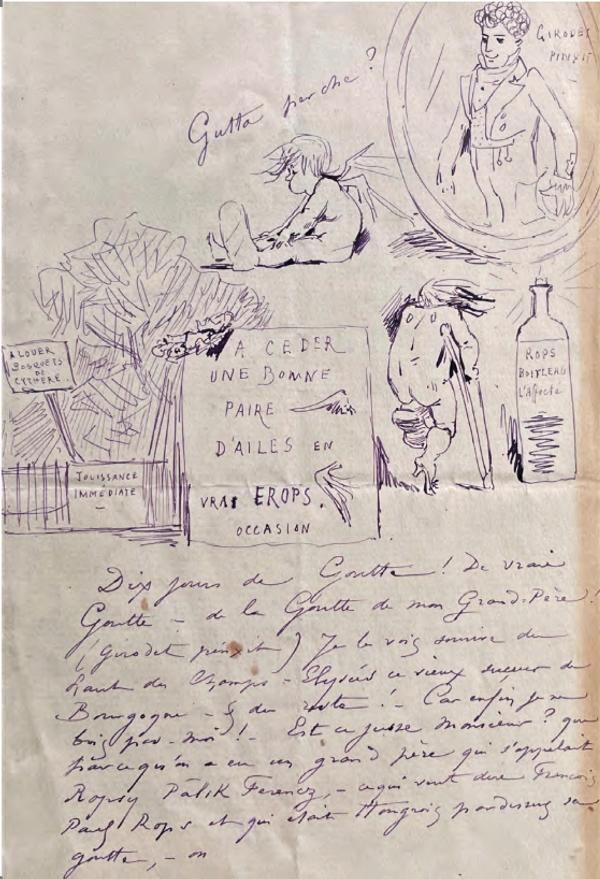 Gutta perche ?
GIRODET
PINXIT
A LOUER
BOSQUETS
DE
CYTHERE
JOUISSANCE
IMMEDIATE
A CEDER
UNE BONNE
PAIRE
D'AILES EN
VRAI EROPS.
OCCASION
ROPS
BOYVEAU
L'Affecte
Dix jours de Goutte ! De vraie
Goutte – de la Goutte de mon Grand-Père !
(Girodet pinxit) Je le vois sourire du
haut des Champs-Elysées ce vieux suceur de
Bourgogne – & du reste ! – Car enfin je ne
bois pas – moi ! – Est ce juste Monsieur ? que
parcequ'on a eu un grand père qui s'appelait
Ropsy Pálik Ferencz, – ce qui veut dire François
Paul Rops et qui était Hongrois pardessus sa
goutte, – on